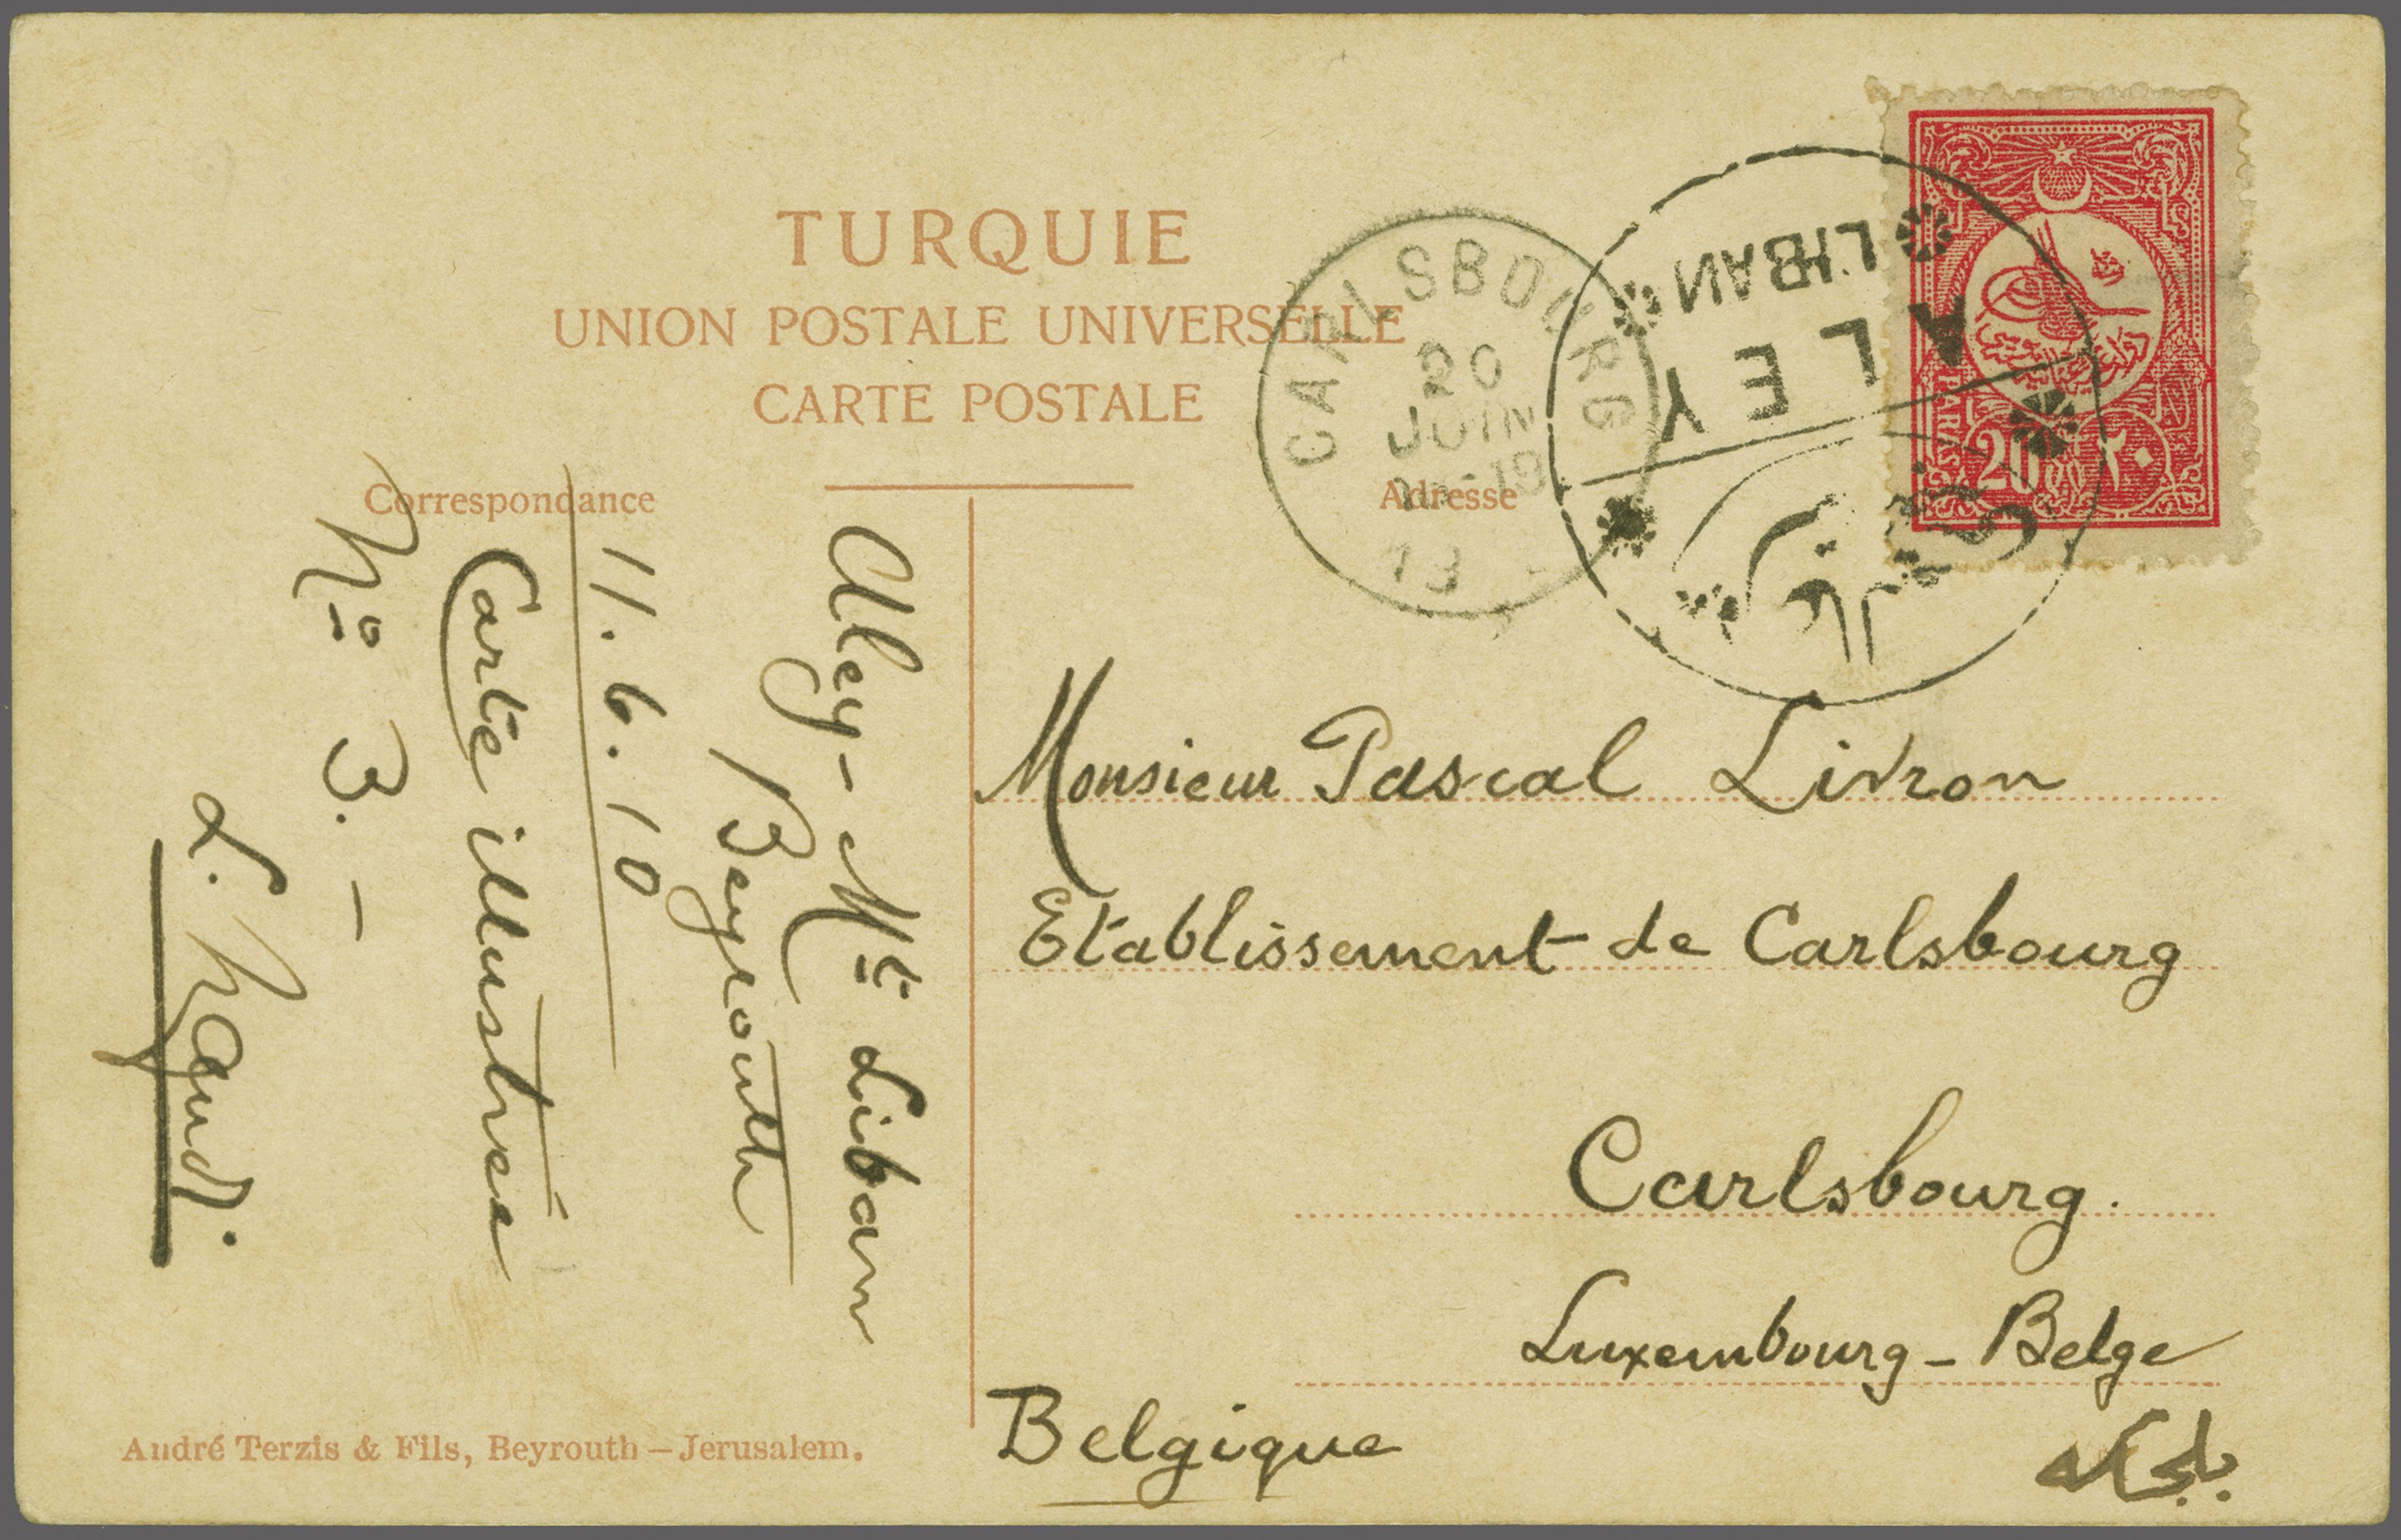 TURQUIE
UNION POSTALE UNIVERSELLE
CARTE POSTALE
Correspondance
Adresse
CARLSBOURG
20
JUIN
ALEY
LIBAN
20 ٢٠
Aley - Mt Liban
Beyrouth
11.6.10
Carte illustrée
No 3. -
Monsieur Pascal Livron
Etablissement de Carlsbourg
Carlsbourg.
Luxembourg - Belge
Belgique
بلجيكه
André Terzis & Fils, Beyrouth – Jerusalem.